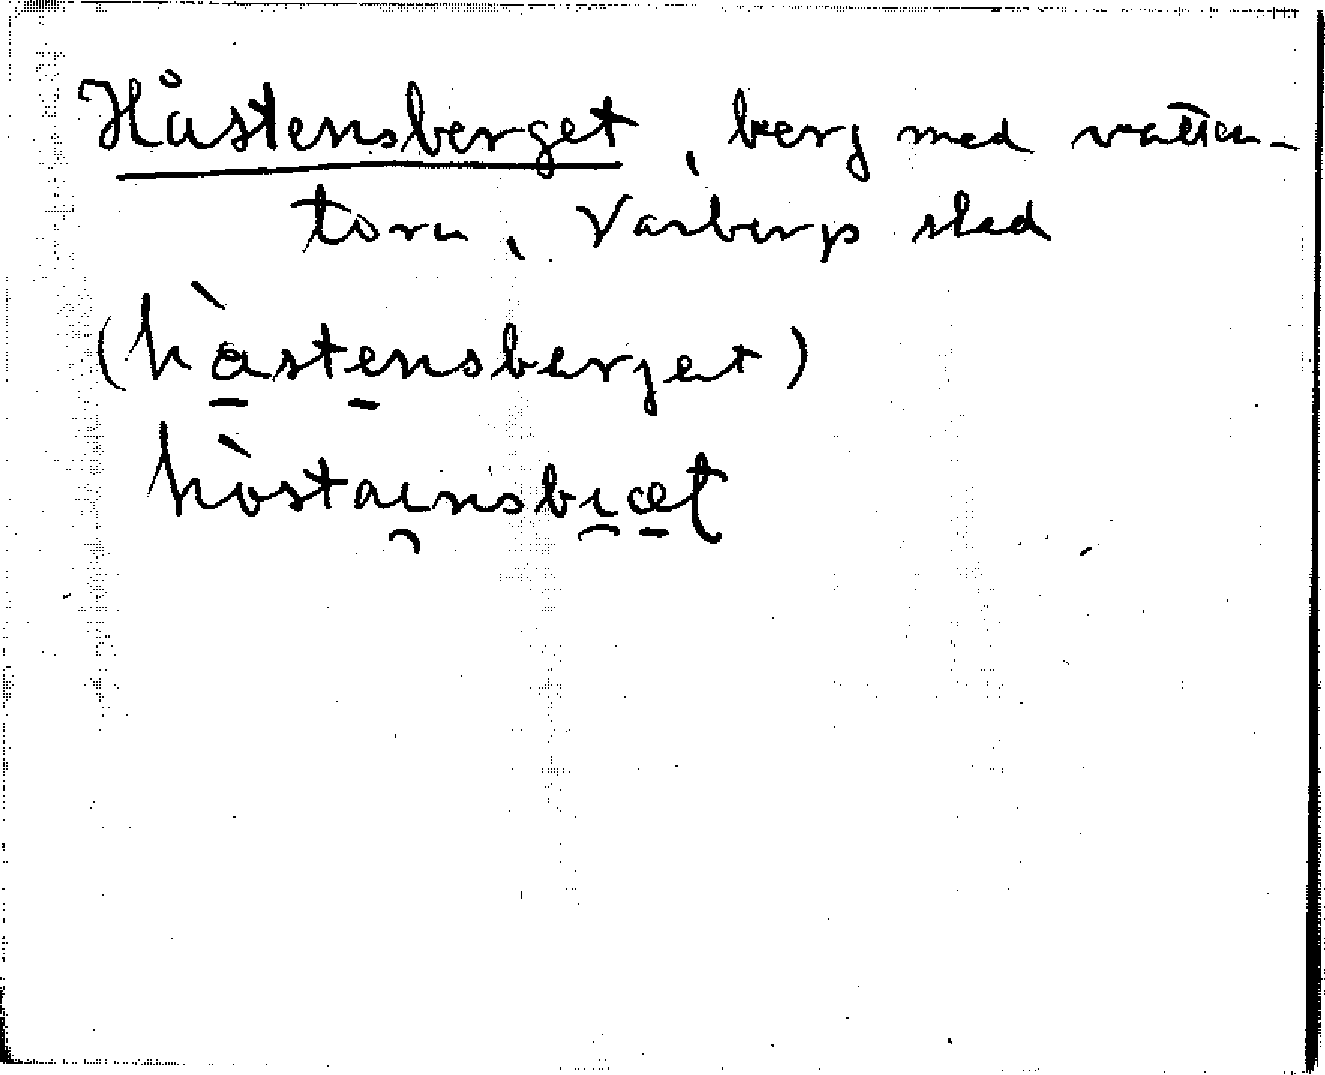 Håstensberget, berg med vatten-
torn, Varbergs stad
(hàstensberget)
hòstainsbıæt